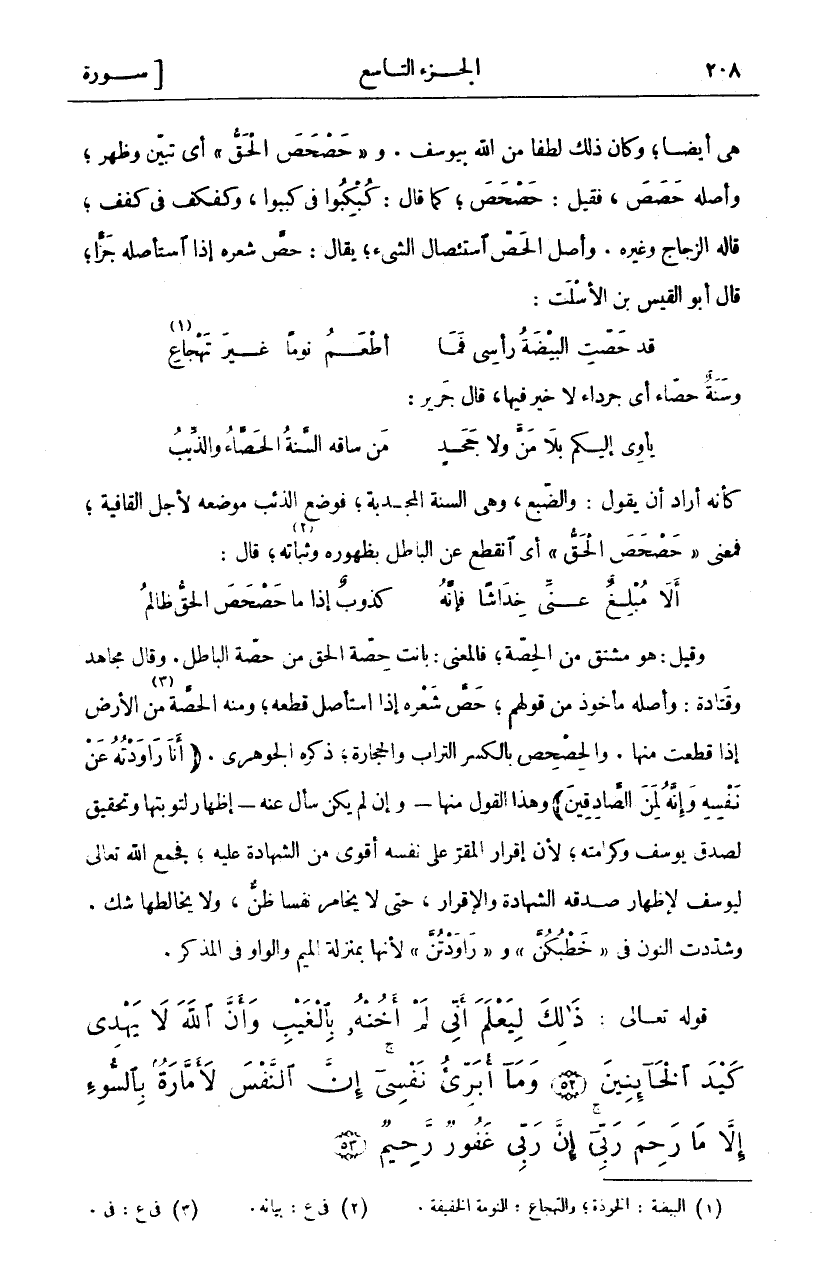 ٢٠٨ الجـزء التاسع [ ســورة
هى أيضا؛ وكان ذلك لطفا من الله بيوسف . و « حَصْحَصَ الْحَقُّ » أى تبيّن وظهر ؛
وأصله حَصَصَ ، فقيل : حَصْحَصَ ؛ كما قال : كُبْكِبُوا فى كببوا ، وكفكف فى كفف ؛
قاله الزجاج وغيره . وأصل الحَصّ ٱستئصال الشىء؛ يقال : حصَّ شعره إذا ٱستأصله جَزًّا؛
قال أبو القيس بن الأَسْلَت :
قد حَصَّتِ البَيْضَةُ رأسِى فَمَا أَطْعَـمُ نومًا غـيرَ تَهْجاعِ (١)
وسَنَةٌ حصّاء أى جرداء لا خير فيها، قال جَرير :
يأوِى إليكم بِلَا مَنٍّ ولا جَحَدٍ مَن ساقه السَّنةُ الحَصَّاءُ والذِّيبُ
كأنه أراد أن يقول : والضّبع ، وهى السنة المجـدبة ؛ فوضع الذئب موضعه لأجل القافية ؛
فمعنى « حَصْحَصَ الْحَقُّ » أى ٱنقطع عن الباطل بظهوره وثباته (٢)؛ قال :
أَلَا مُبْلِـغٌ عـنِّى خِدَاشًا فإنَّهُ كذوبٌ إذا ما حَصْحَصَ الحقُّ ظالمُ
وقيل : هو مشتق من الحِصّة؛ فالمعنى : بانت حِصّة الحق من حصّة الباطل . وقال مجاهد
وقَتادة : وأصله مأخوذ من قولهم ؛ حَصَّ شَعْره إذا استأصل قطعه؛ ومنه الحصَّة من (٣) الأرض
إذا قطعت منها . والحِصْحِص بالكسر التراب والحجارة ؛ ذكره الجوهرى . ﴿ أَنَا رَاوَدْتُهُ عَنْ
نَفْسِهِ وَإِنَّهُ لَمِنَ الصَّادِقِينَ﴾ وهذا القول منها — و إن لم يكن سأل عنه — إظهار لتوبتها وتحقيق
لصدق يوسف وكرامته ؛ لأن إقرار المقرّ على نفسه أقوى من الشهادة عليه ؛ فجمع الله تعالى
ليوسف لإظهار صـدقه الشهادة والإقرار ، حتى لا يخامر نفسا ظنٌّ ، ولا يخالطها شك .
وشدّدت النون فى « خَطْبُكُنَّ » و « رَاوَدْتُنَّ » لأنها بمنزلة الميم والواو فى المذكر .
قوله تعـالى : ذَٰلِكَ لِيَعْلَمَ أَنِّى لَمْ أَخُنْهُ بِٱلْغَيْبِ وَأَنَّ ٱللَّهَ لَا يَهْدِى
كَيْدَ ٱلْخَآئِنِينَ ۝٥٢ وَمَآ أُبَرِّئُ نَفْسِىٓ ۚ إِنَّ ٱلنَّفْسَ لَأَمَّارَةٌۢ بِٱلسُّوٓءِ
إِلَّا مَا رَحِمَ رَبِّىٓ ۚ إِنَّ رَبِّى غَفُورٌ رَّحِيمٌ ۝٥٣
(١) البيضة : الخوذة ؛ والتهجاع : النومة الخفيفة . (٢) فى ع : بيانه. (٣) فى ع : فى .